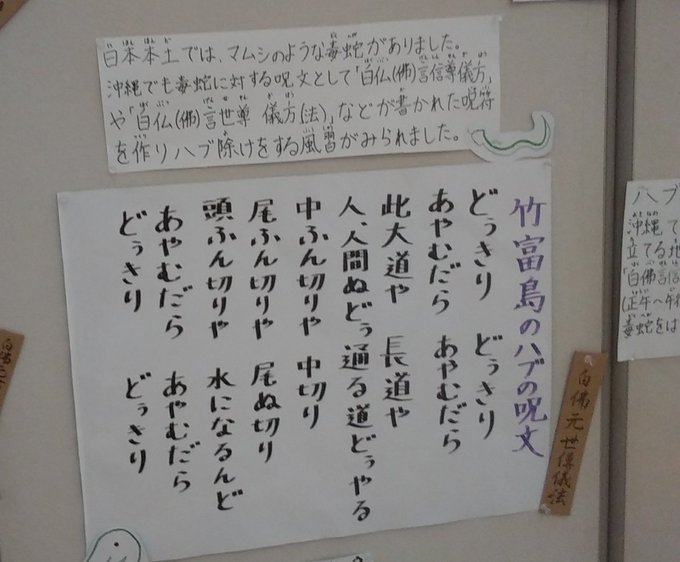 日本本土では、マムシのような毒蛇がありました。
沖縄でも毒蛇に対する呪文として「白仏(佛)言信尊儀方」
や「白仏(佛)言世尊 儀方(法)」などが書かれた呪符
を作りハブ除けをする風習がみられました。
竹富島のハブの呪文
どぅきり どぅきり
あやむだら あやむだら
此大道や 長道や
人、人間ぬどぅ通る道どぅやる
中ふん切りや 中切り
尾ふん切りや 尾ぬ切り
頭ふん切りや 水になるんど
あやむだら あやむだら
どぅきり どぅきり
白佛元世尊儀法
ハブ
沖縄で
立てる地
「白佛言信
(正午～午
毒蛇をは